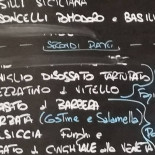 SILLI SICILIANA
ONCELLI POMODORO e BASILI
SECONDI PIATTI
NIGLIO DISOSSATO TARTUFATO
EZZATINO di VITELLO
ASATO al BARBERA
(Costine e Salamella)
LSICCIA Funghi e
ATO di CINGHIALE alla VENETA